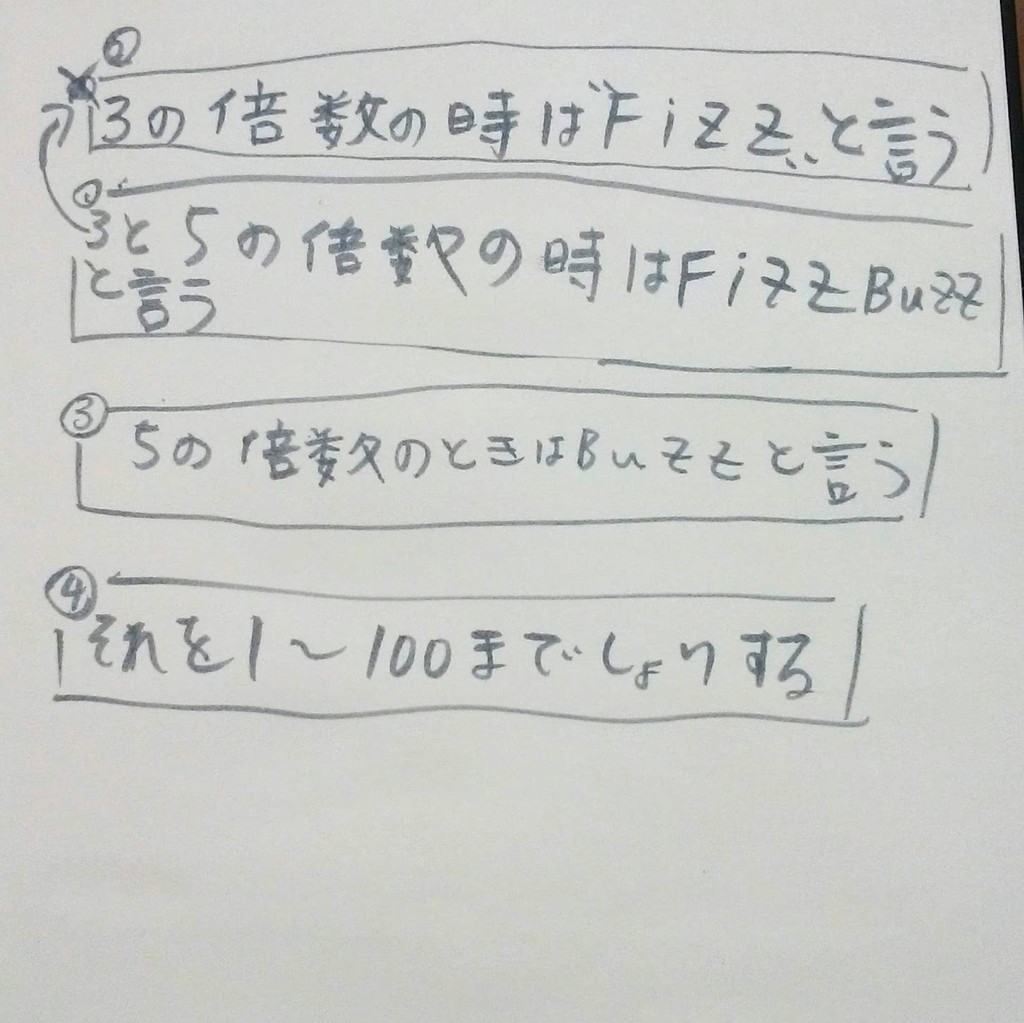 ②
3の倍数の時は"Fizz"と言う
①
3と5の倍数の時はFizzBuzz
と言う
③
5の倍数のときはBuzzと言う
④
それを1～100までしょりする